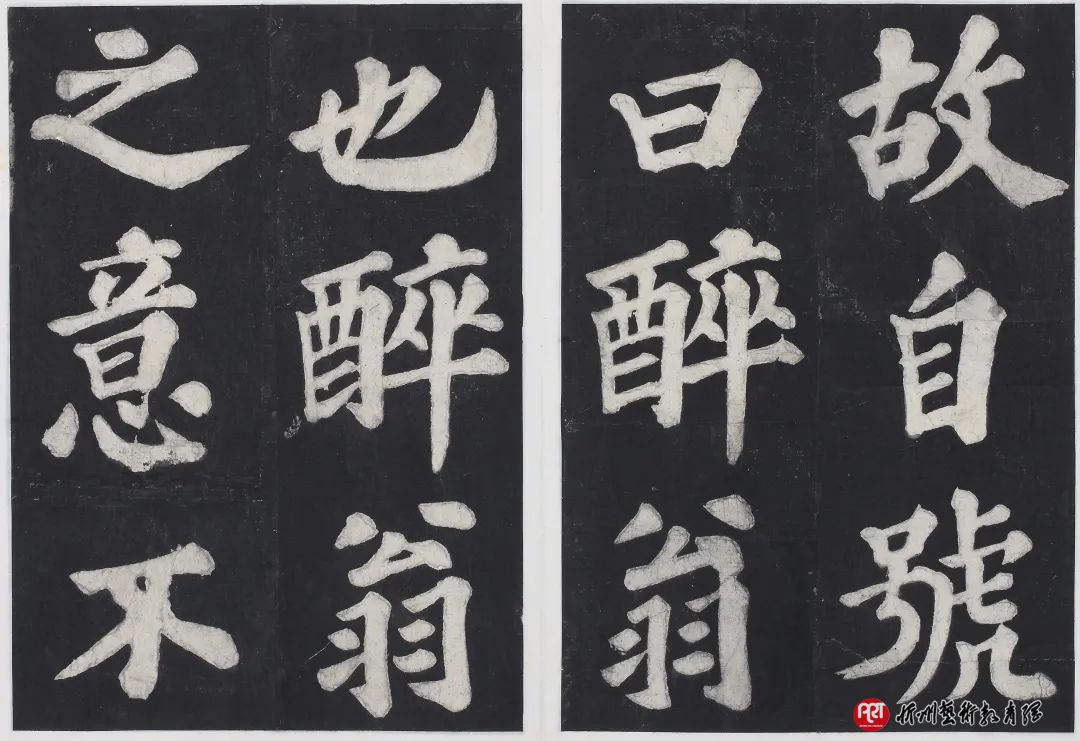 故自號
曰醉翁
也醉翁
之意不
ART 忻州藝術教育網